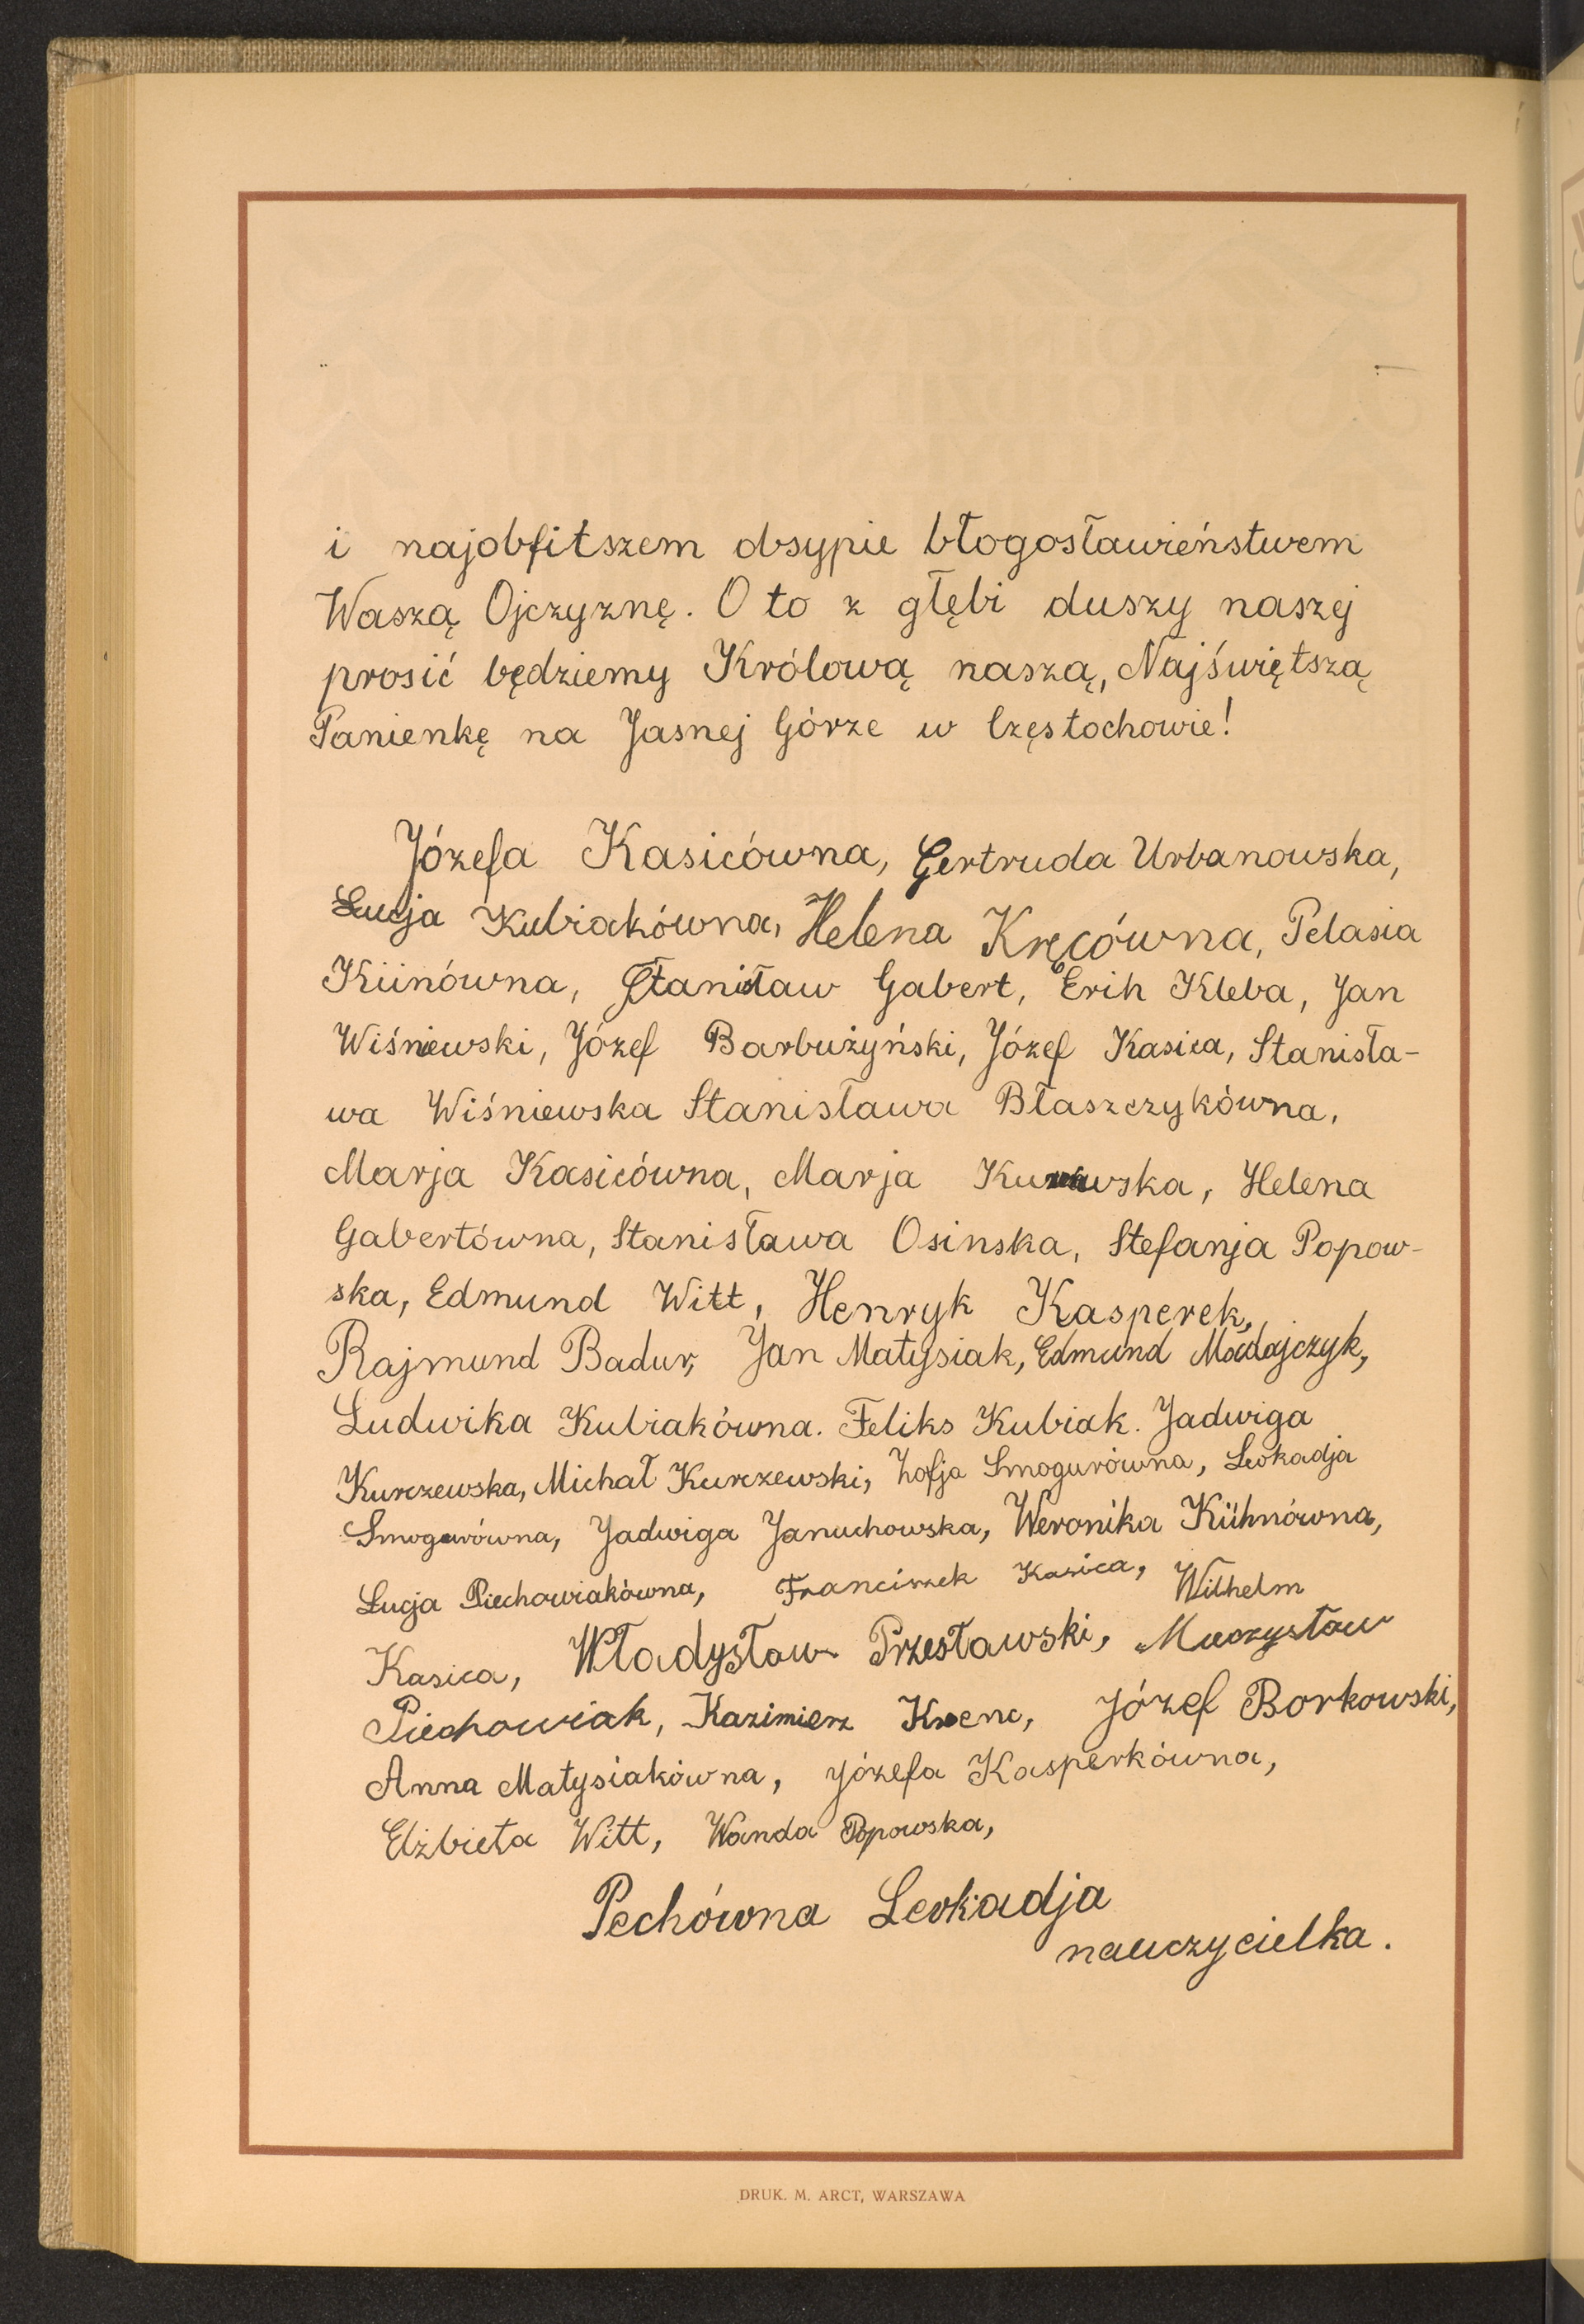 i najobfitszem obsypie błogosławieństwem
Waszą Ojczyznę. O to z głębi duszy naszej
prosić będziemy Królową naszą, Najświętszą
Panienkę na Jasnej Górze w Częstochowie!
Józefa Kasicówna, Gertruda Urbanowska,
Łucja Kubiakówna, Helena Kręcówna, Pelasia
Kiinówna, Stanisław Gabert, Erih Kleba, Jan
Wiśniewski, Józef Barbużyński, Józef Kasica, Stanisła-
wa Wiśniewska Stanisława Błaszczykówna,
Marja Kasicówna, Marja Helena
Gabertówna, Stanisława Osinska, Stefanja Popow-
ska, Edmund Witt, Henryk Kasperek,
Rajmund Badur, Jan Matysiak, Edmund Madajczyk,
Ludwika Kubiakówna. Feliks Kubiak. Jadwiga
Kurczewska, Michał Kurczewski, Zofja Smogurówna, Leokadja
Smogurówna, Jadwiga Januchowska, Weronika Kühnówna,
Łucja Piechowiakówna, Franciszek Kasica, Wilhelm
Kasica, Władysław Przesławski, Mieczysław
Piechowiak, Kazimierz Józef Borkowski,
Anna Matysiakówna, Józefa Kasperkówna,
Elżbieta Witt, Wanda Popowska,
Pechówna Leokadja
nauczycielka.
DRUK. M. ARCT, WARSZAWA